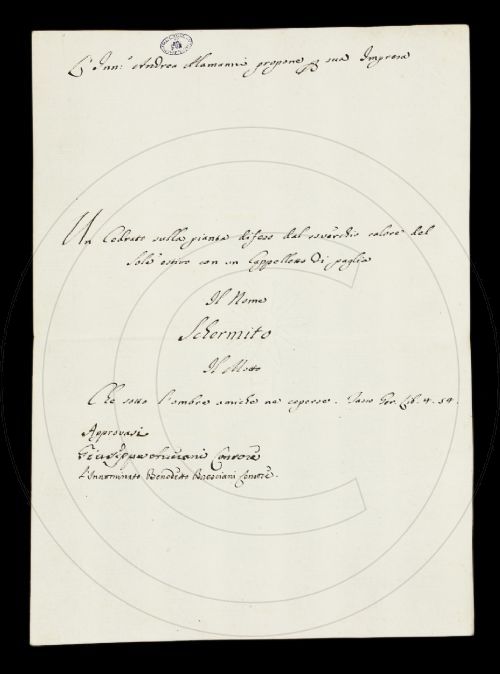 L' Inn.º Andrea Alamanni propone p sua Impresa
Un Cedrato sulla pianta difeso dal soverchio calore del
Sole estivo con un Cappelletto di paglia
Il Nome
Schermito
Il Motto
Che sotto l'ombre amiche ne coperse. Tasso Ger. Lib. 4. 54.
Approvasi
Giuseppe Censore
L'Innominato Benedetto Bresciani Censore.